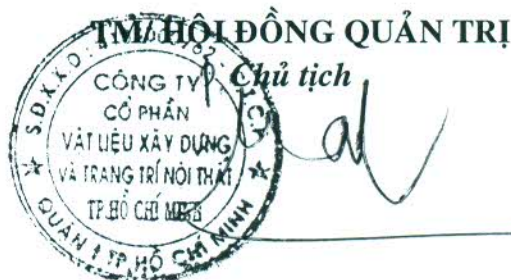 TM/ HỘI ĐỒNG QUẢN TRỊ
Chủ tịch
CÔNG TY
CỔ PHẦN
VẬT LIỆU XÂY DỰNG
VÀ TRANG TRÍ NỘI THẤT
TP.HỒ CHÍ MINH
QUẬN 1 TP HỒ CHÍ MINH